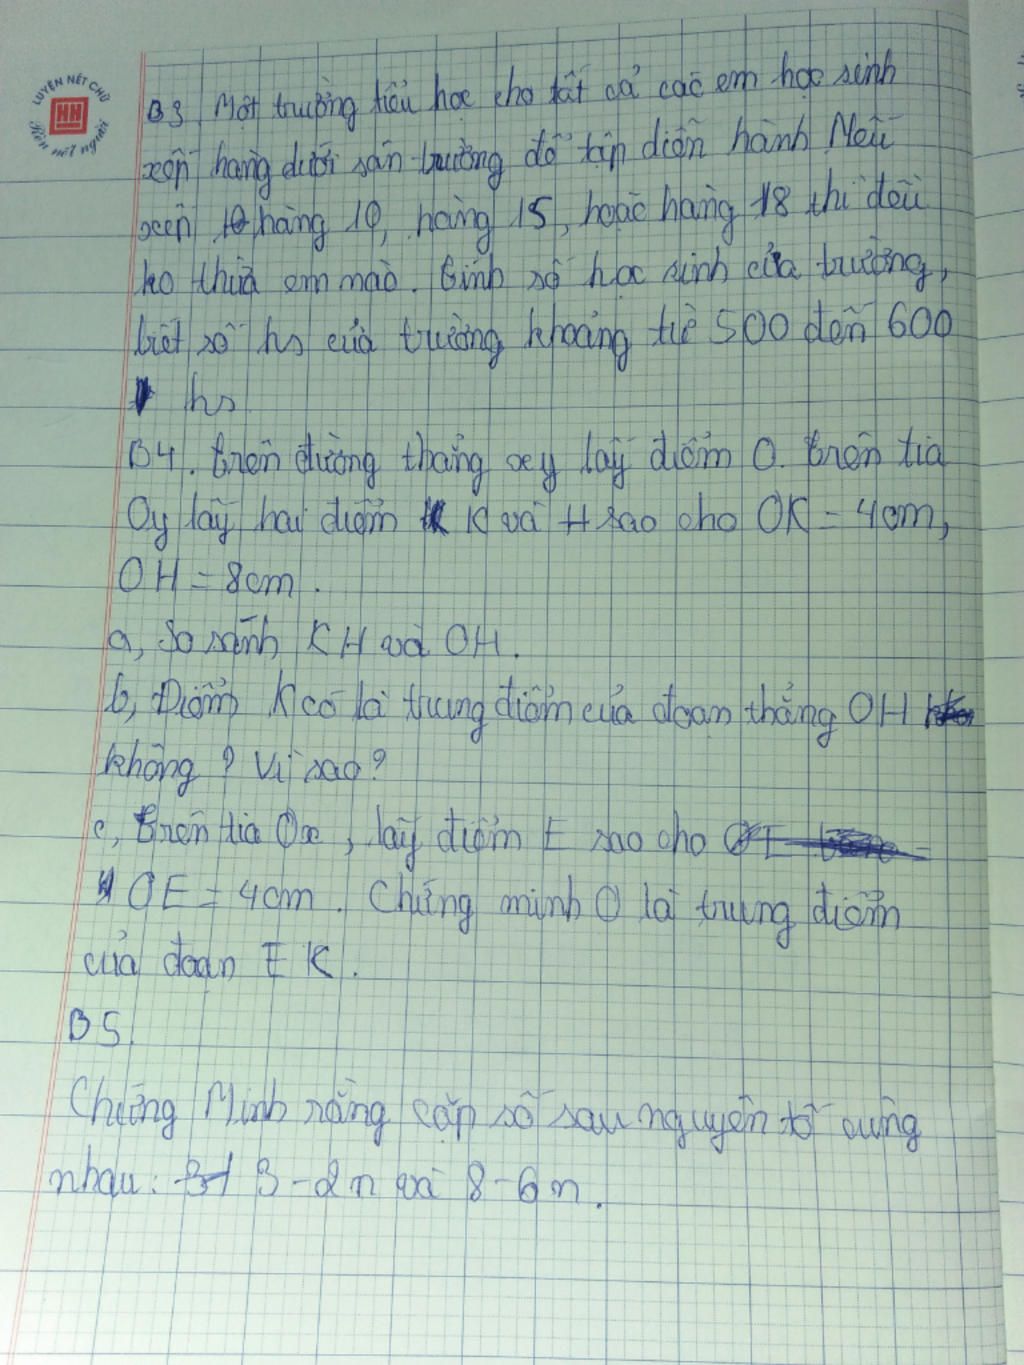 LUYỆN NÉT CHỮ
HH
Rèn nết người
B3, Một trường tiểu học cho tất cả các em học sinh
xếp hàng dưới sân trường để tập diễn hành Nếu
xếp hàng 10, hàng 15, hoặc hàng 18 thì đều
ko thừa em mào. Tính số học sinh của trường,
biết số hs của trường khoảng từ 500 đến 600
hs
B4. Trên đường thẳng xy lấy điểm O. Trên tia
Oy lấy hai điểm K và H sao cho OK = 4cm,
OH = 8cm.
a, So sánh KH và OH.
b, Điểm K có là trung điểm của đoạn thẳng OH
không? Vì sao?
c, Trên tia Ox, lấy điểm E sao cho
OE = 4cm. Chứng minh O là trung điểm
của đoạn EK.
B5.
Chứng Minh rằng cặp số sau nguyên tố cùng
nhau: 3-2n và 8-6n.